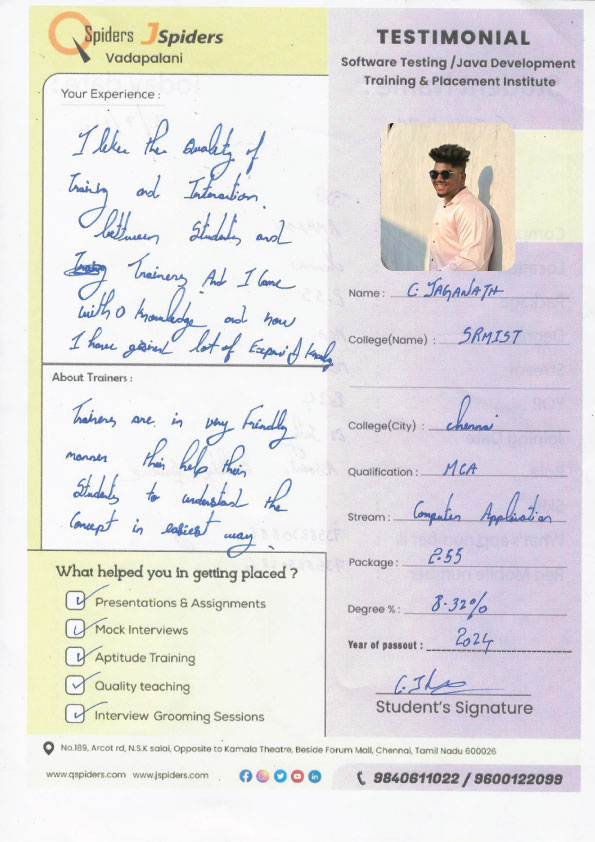 QSpiders JSpiders
Vadapalani
TESTIMONIAL
Software Testing /Java Development
Training & Placement Institute
Your Experience :
I like the Quality of
Training and Interaction
between Students and
Trainers And I came
with 0 knowledge and now
I have gained lot of
About Trainers :
Trainers are in very Friendly
manner their help their
Students to understand the
Concept in easiest way.
What helped you in getting placed ?
Presentations & Assignments
Mock Interviews
Aptitude Training
Quality teaching
Interview Grooming Sessions
Name : C. JAGANATH
College(Name) : SRMIST
College(City) : Chennai
Qualification : MCA
Stream : Computer Application
Package : 2.55
Degree % : 8.32%
Year of passout : 2024
Student's Signature
No.189, Arcot rd, N.S.K salai, Opposite to Kamala Theatre, Beside Forum Mall, Chennai, Tamil Nadu 600026
www.qspiders.com www.jspiders.com
9840611022 / 9600122099